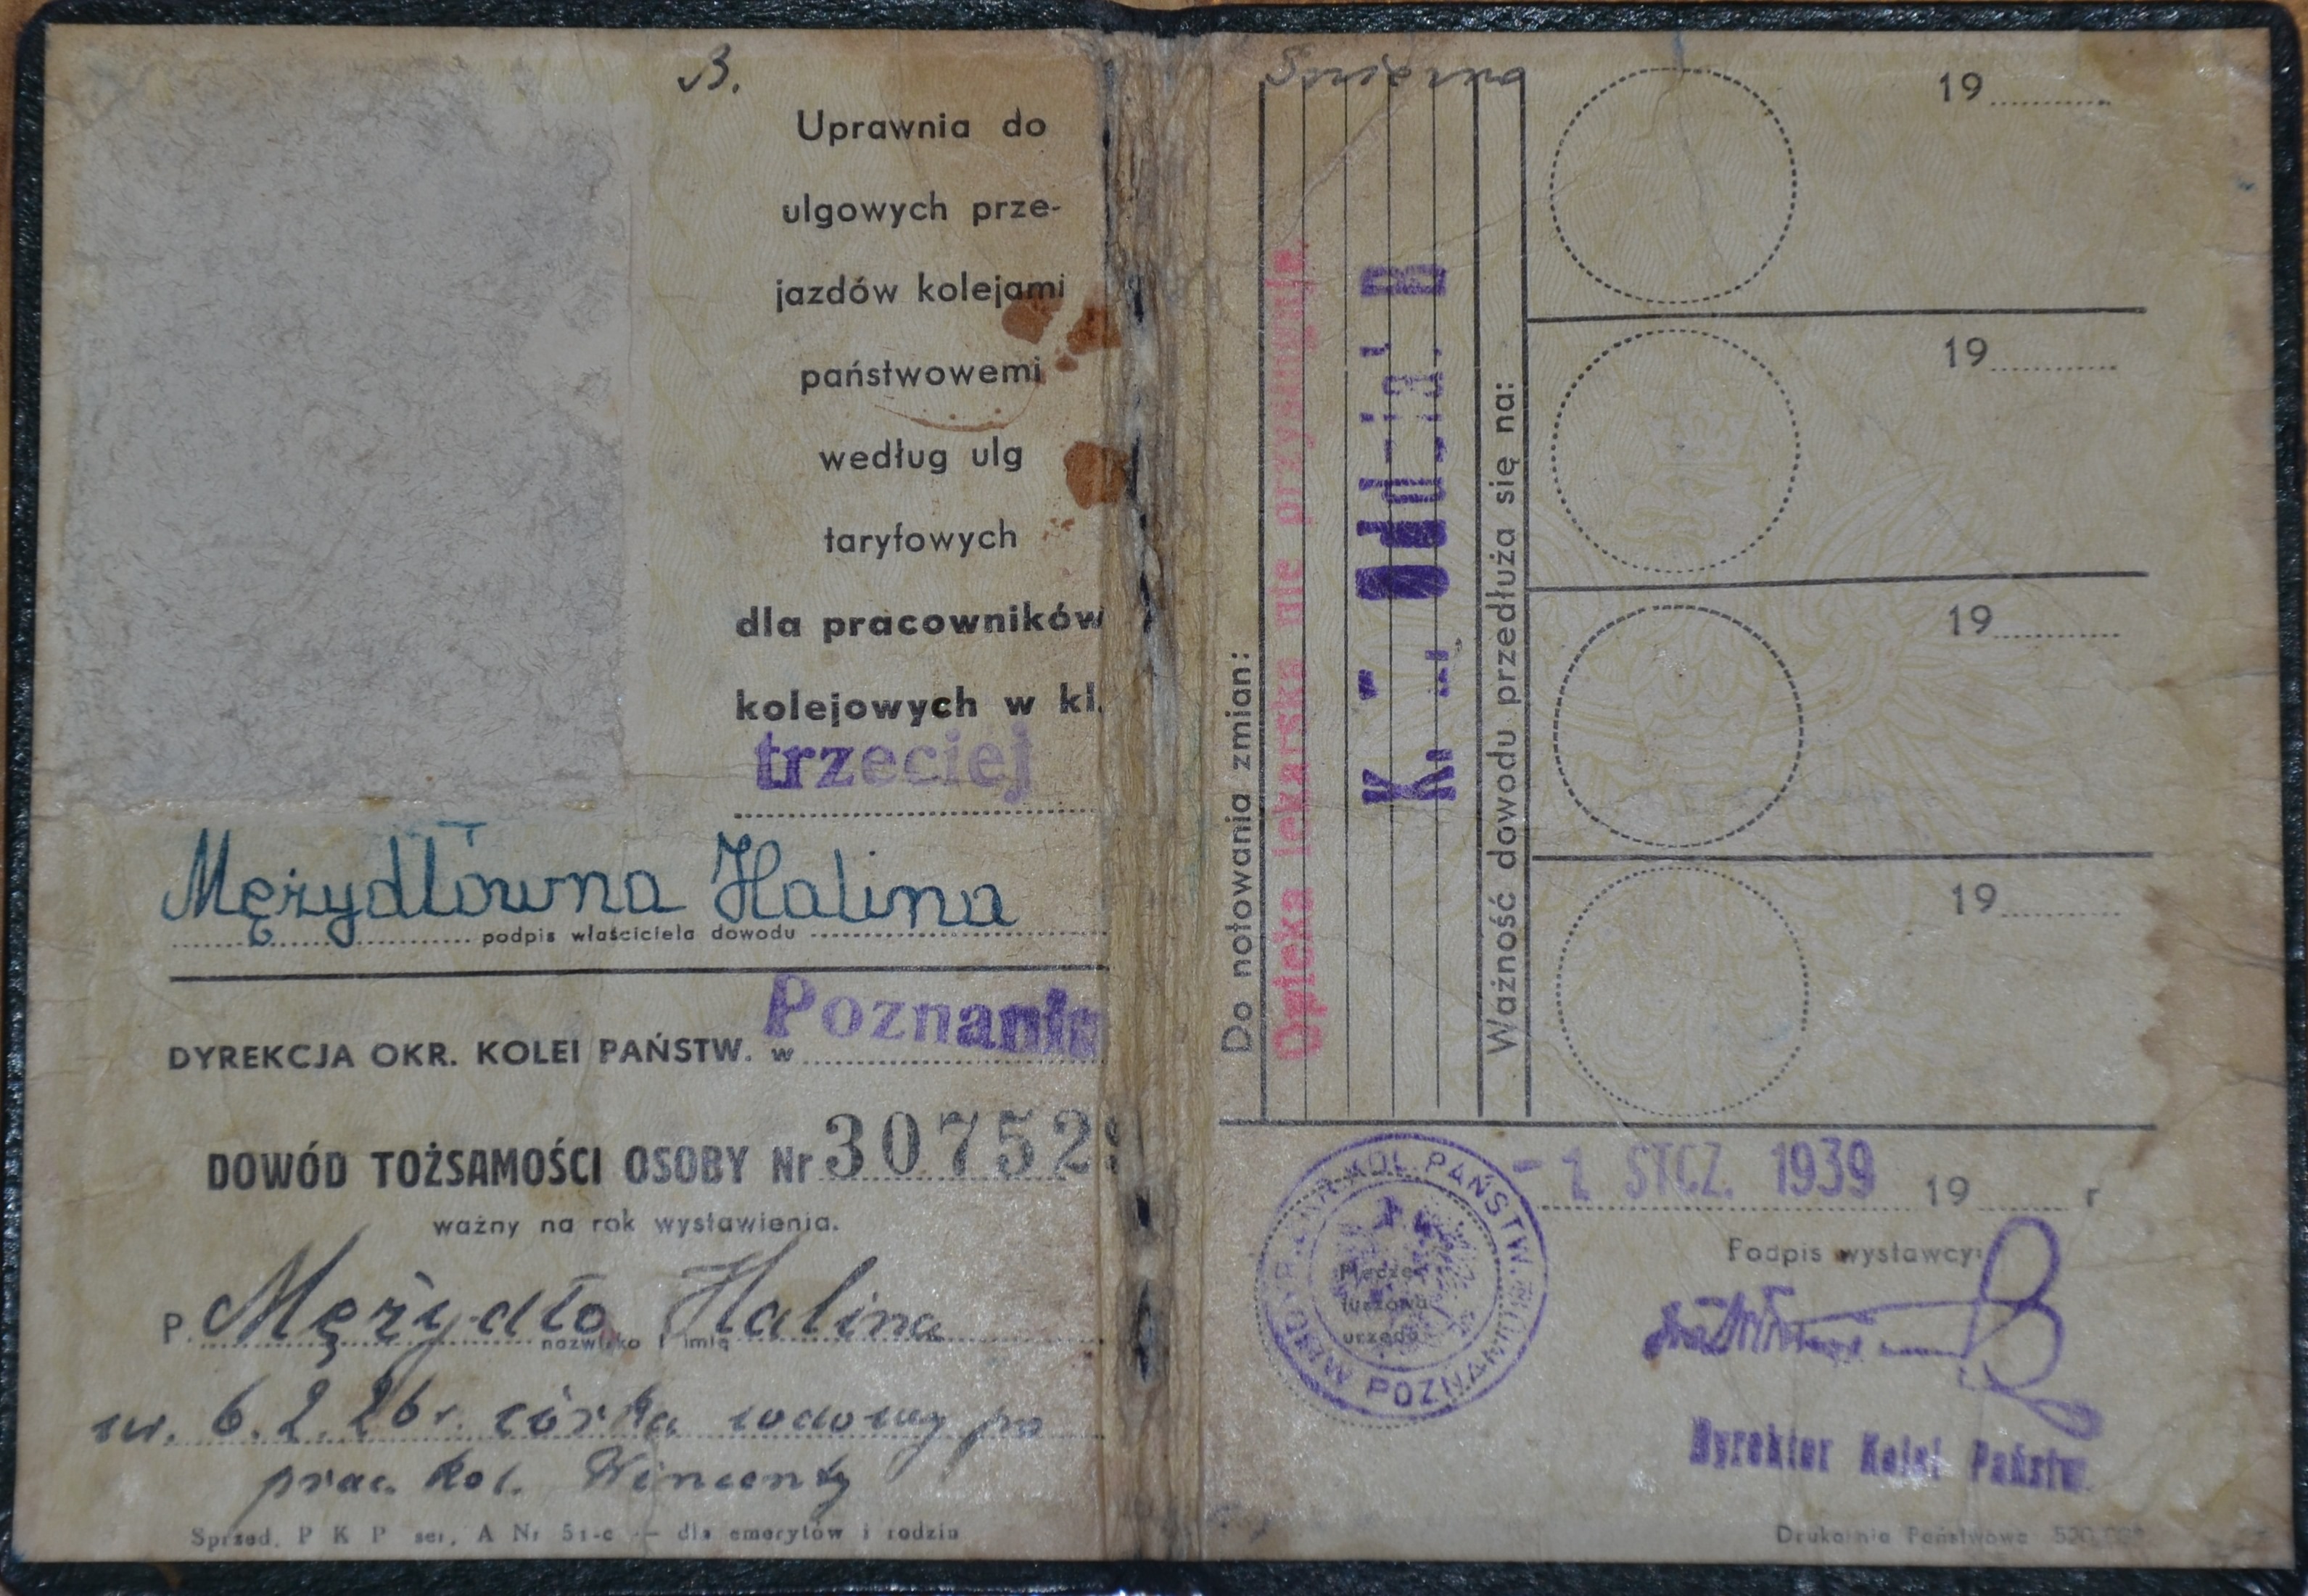 B.
Uprawnia do
ulgowych prze-
jazdów kolejami
państwowemi
według ulg
taryfowych
dla pracowników
kolejowych w kl.
trzeciej
Mężydłówna Halina
podpis właściciela dowodu
DYREKCJA OKR. KOLEI PAŃSTW. w Poznaniu
DOWÓD TOŻSAMOŚCI OSOBY Nr 30752
ważny na rok wystawienia.
P. Mężydło Halina
nazwisko i imię
ur. 6.2.26 r. córka wdowy po
prac. kol. Wincenty
Sprzed. P K P ser. A Nr 51-c — dla emerytów i rodzin
Do notowania zmian:
Opieka lekarska nie przysługuje.
Ważność dowodu przedłuża się na:
19
19
19
19
- 1 STCZ. 1939 19 r
KOL. PAŃSTW. W POZNANIU
Pieczęć
tuszowa
urzędu
Podpis wystawcy:
Dyrektor Kolei Państw.
Drukarnia Państwowa